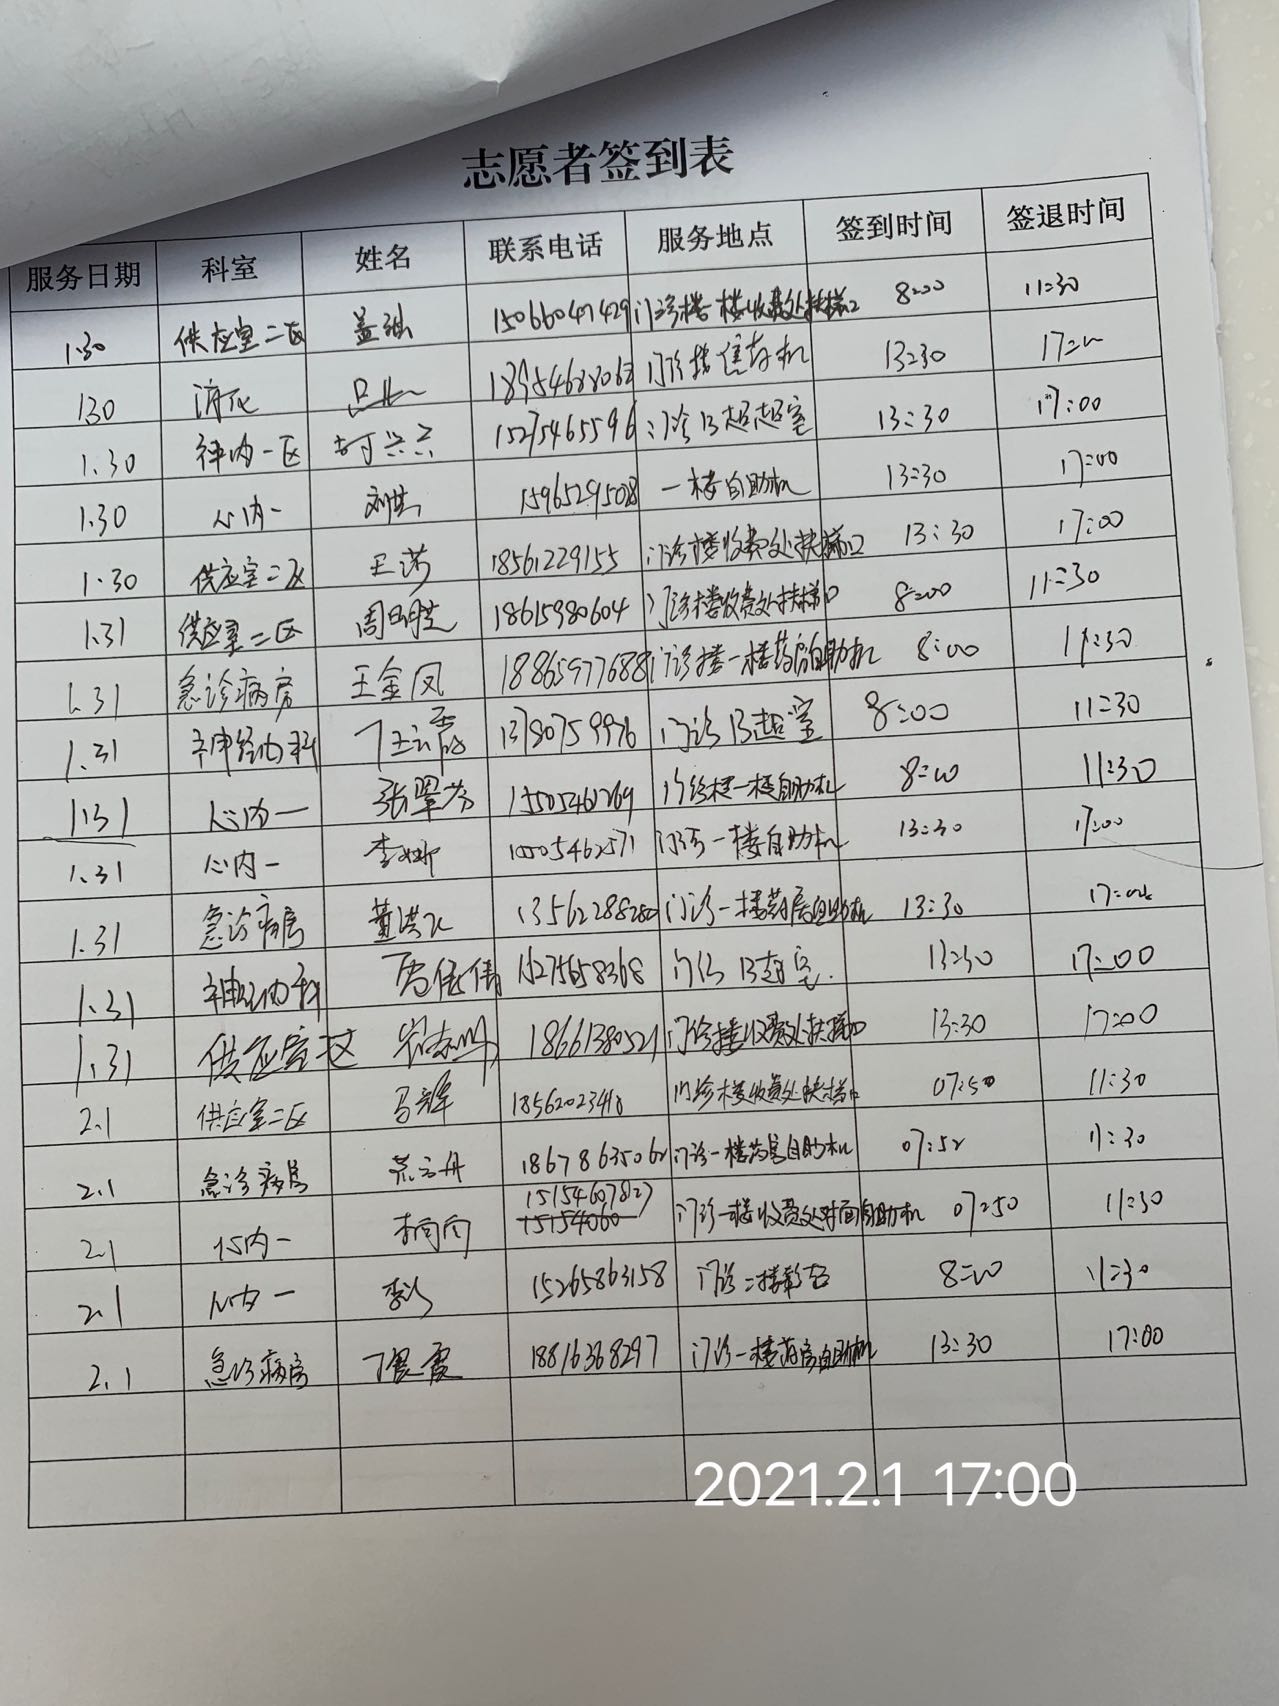 志愿者签到表
服务日期 科室 姓名 联系电话 服务地点 签到时间 签退时间
1.30 供应室二区 盖 15066047429 门诊楼一楼收费处扶梯口 8:00 11:30
1.30 消化 门诊楼 机 13:30
1.30 神内一区 15275465596 门诊B超室 13:30 17:00
1.30 心内一 15965295028 一楼自助机 13:30 17:00
1.30 供应室二区 王 18561229155 门诊楼收费处扶梯口 13:30 17:00
1.31 供应室二区 周明 18615980604 门诊楼收费处扶梯口 8:00 11:30
1.31 急诊病房 王金凤 18865977688 门诊楼一楼药房自助机 8:00 11:30
1.31 神经内科 13780759976 门诊B超室 8:00 11:30
1.31 心内一 张翠芳 15505461269 门诊楼一楼自助机 8:00 11:30
1.31 心内一 李娜 5462571 门诊一楼自助机 13:30 17:00
1.31 急诊病房 董洪 门诊一楼药房自助机 13:30
1.31 神经内科 15275658368 门诊B超室. 13:30 17:00
1.31 供应室二区 18661380521 门诊楼收费处扶梯口 13:30 17:00
2.1 供应室二区 马辉 门诊楼收费处扶梯口 07:50 11:30
2.1 急诊病房 18678635062 门诊一楼药房自助机 07:52 11:30
2.1 心内一 15154607827 门诊一楼收费处对面自助机 07:50 11:30
2.1 心内一 15265863158 门诊二楼 8:00 11:30
2.1 急诊病房 丁 霞 18816368297 门诊一楼药房自助机 13:30 17:00
2021.2.1 17:00